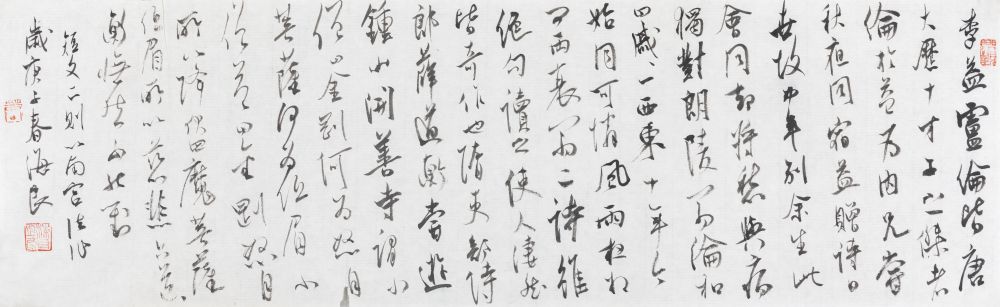 李益盧綸皆唐
大歷十才子之傑者
綸於益為內兄嘗
秋夜同宿益贈詩曰
世故中年別余生此
會同却將愁與病
獨對朗陵翁綸和
曰戚戚一西東十年今
始同可憐風雨夜相
問兩衰翁二詩雖
絕句讀之使人淒然
皆奇作也隋吏部侍
郎薛道衡嘗遊
鍾山開善寺謂小
僧曰金剛何為怒目
菩薩何為低眉小
僧答曰金剛怒目
所以降伏四魔菩薩
低眉所以慈悲六道
衡憮然不能對
短文二則以南宮法抄
歲庚子春海良